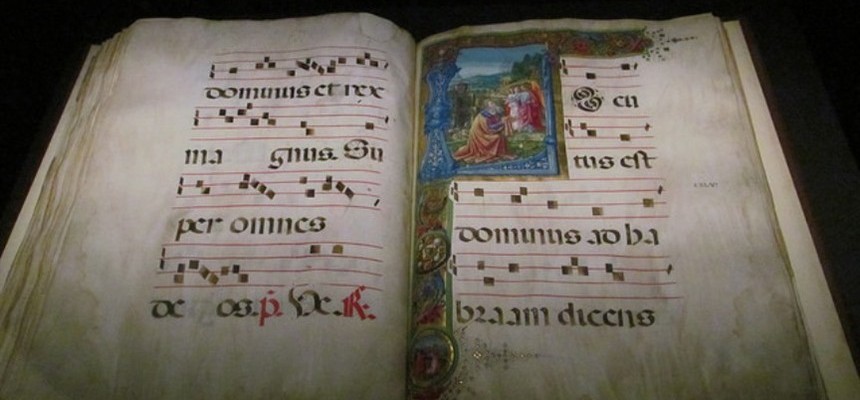 dominus et rex
ma gnus. Su
per omnes
de os. p. Ve. R.
cu
tus est
dominus ad ha
braam dicens